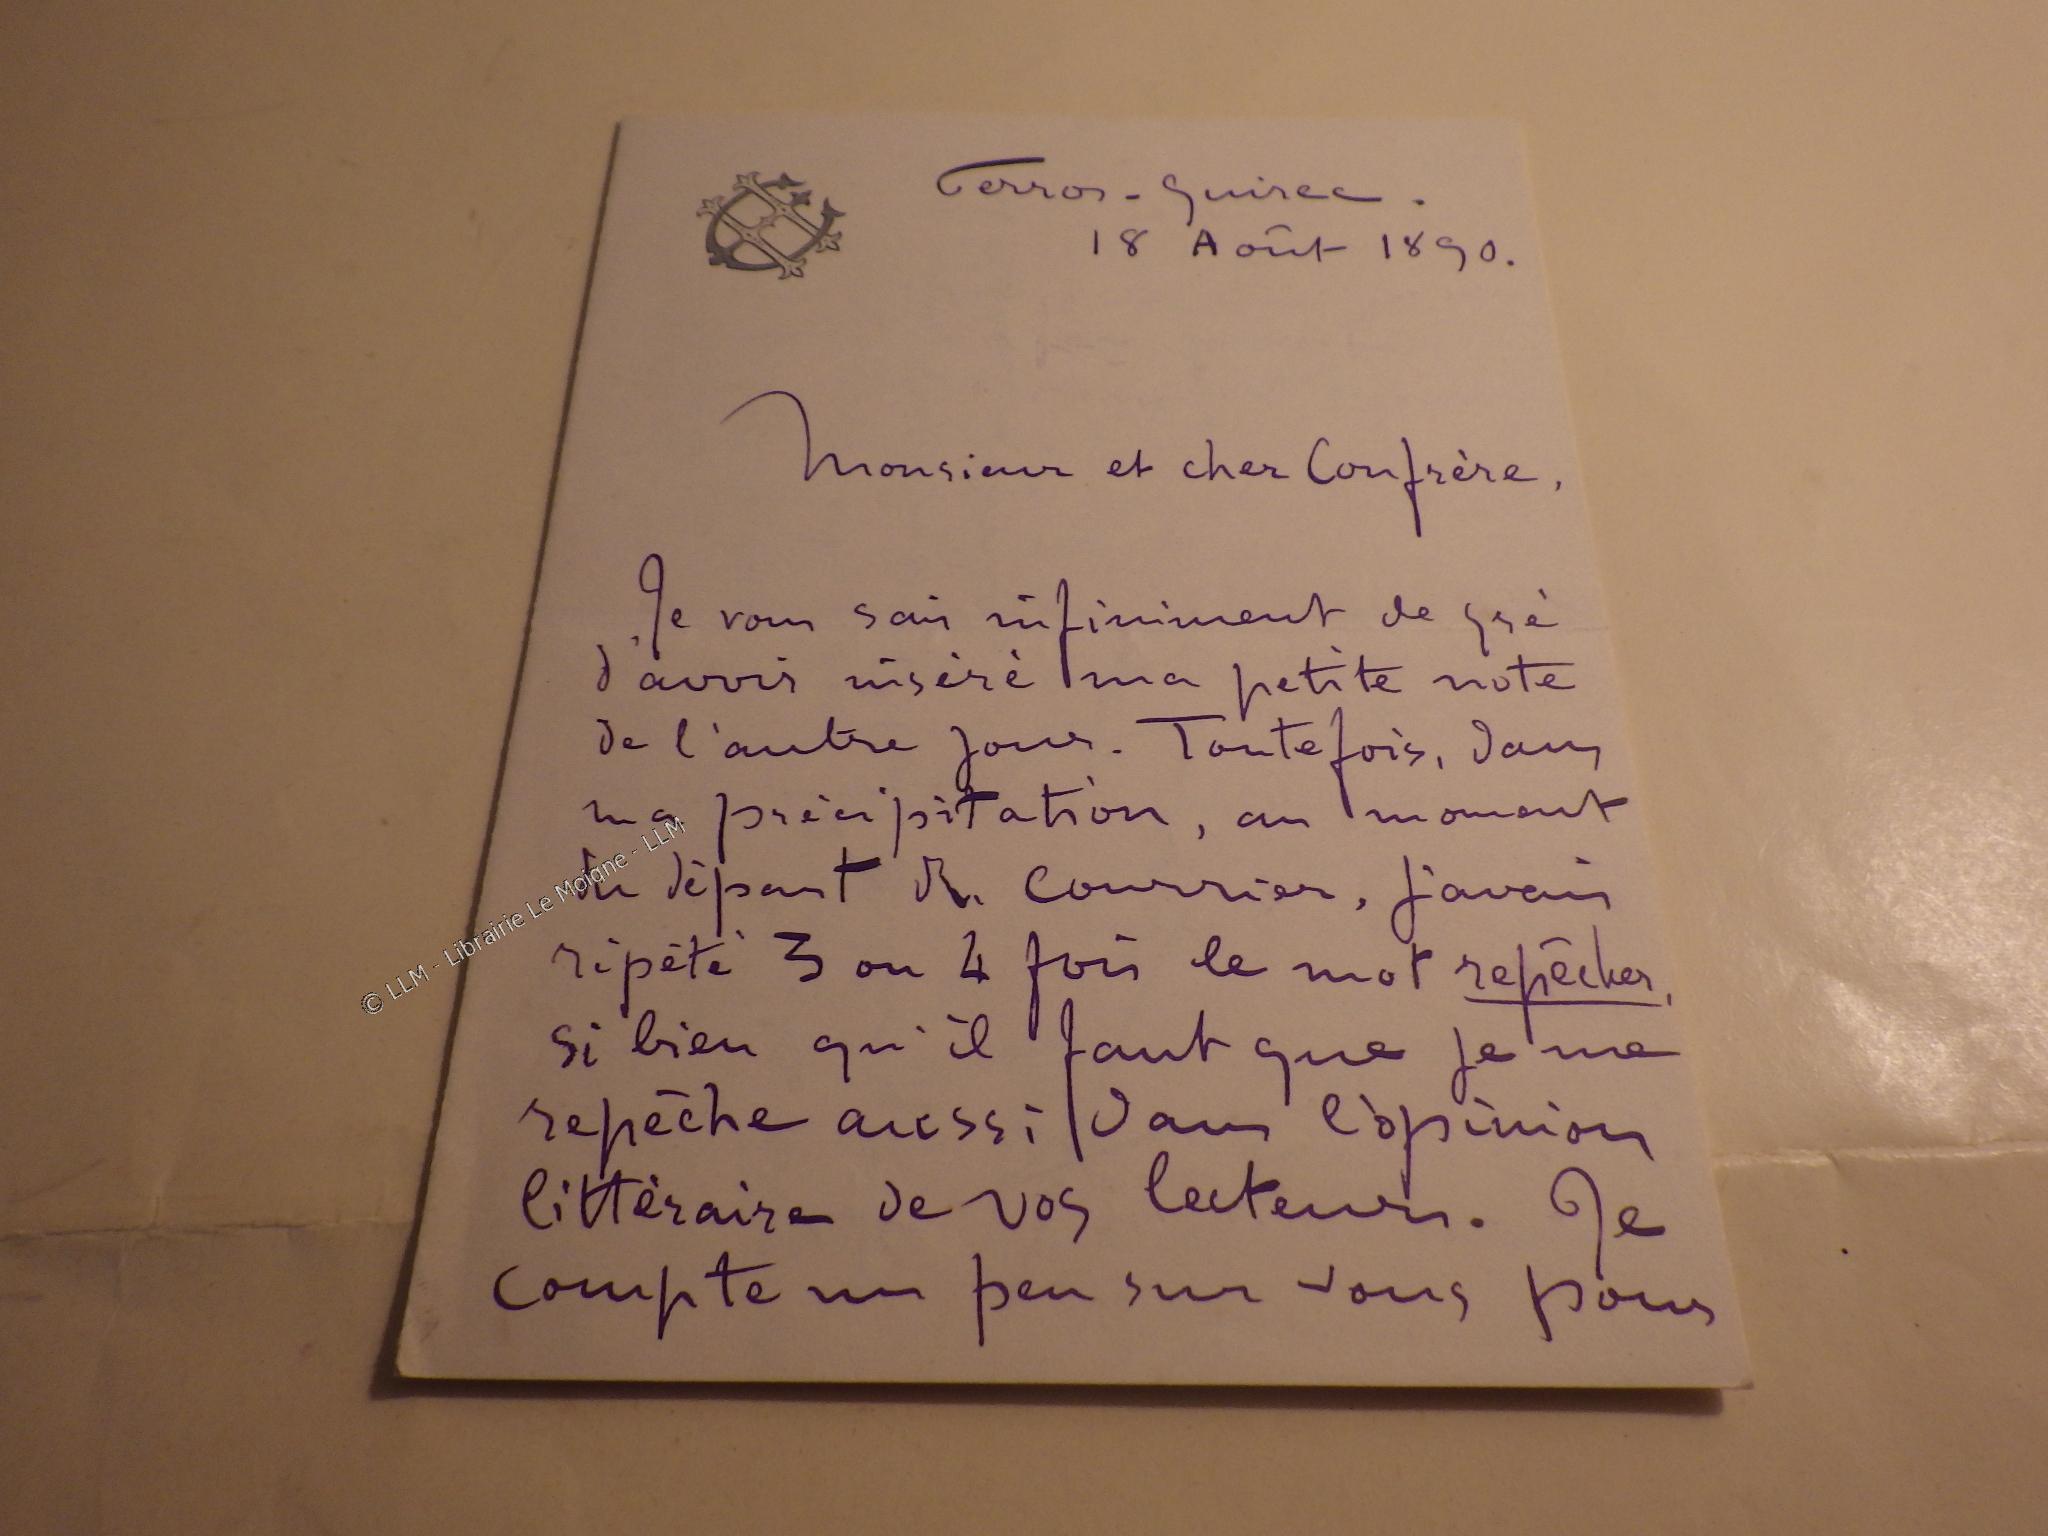 Perros-Guirec.
18 Août 1890.
Monsieur et cher Confrère,
Je vous sais infiniment de gré
d'avoir inséré ma petite note
de l'autre jour. Toutefois, dans
ma précipitation, au moment
du départ du courrier, j'avais
répété 3 ou 4 fois le mot repêcher,
si bien qu'il faut que je me
repêche aussi dans l'opinion
littéraire de vos lecteurs. Je
compte un peu sur vous pour
© LLM - Librairie Le Moigne - LLM